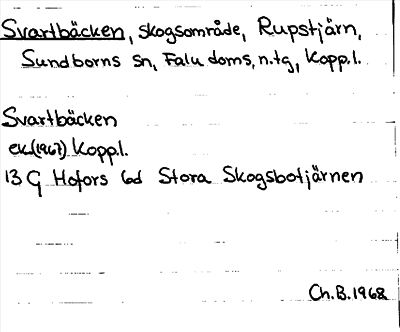 Svartbäcken, skogsområde, Rupstjärn,
Sundborns sn, Falu doms, n.tg, Kopp.l.
Svartbäcken
ek(1967) Kopp.l.
13 G Hofors 6d Stora Skogsbotjärnen
Ch.B.1968